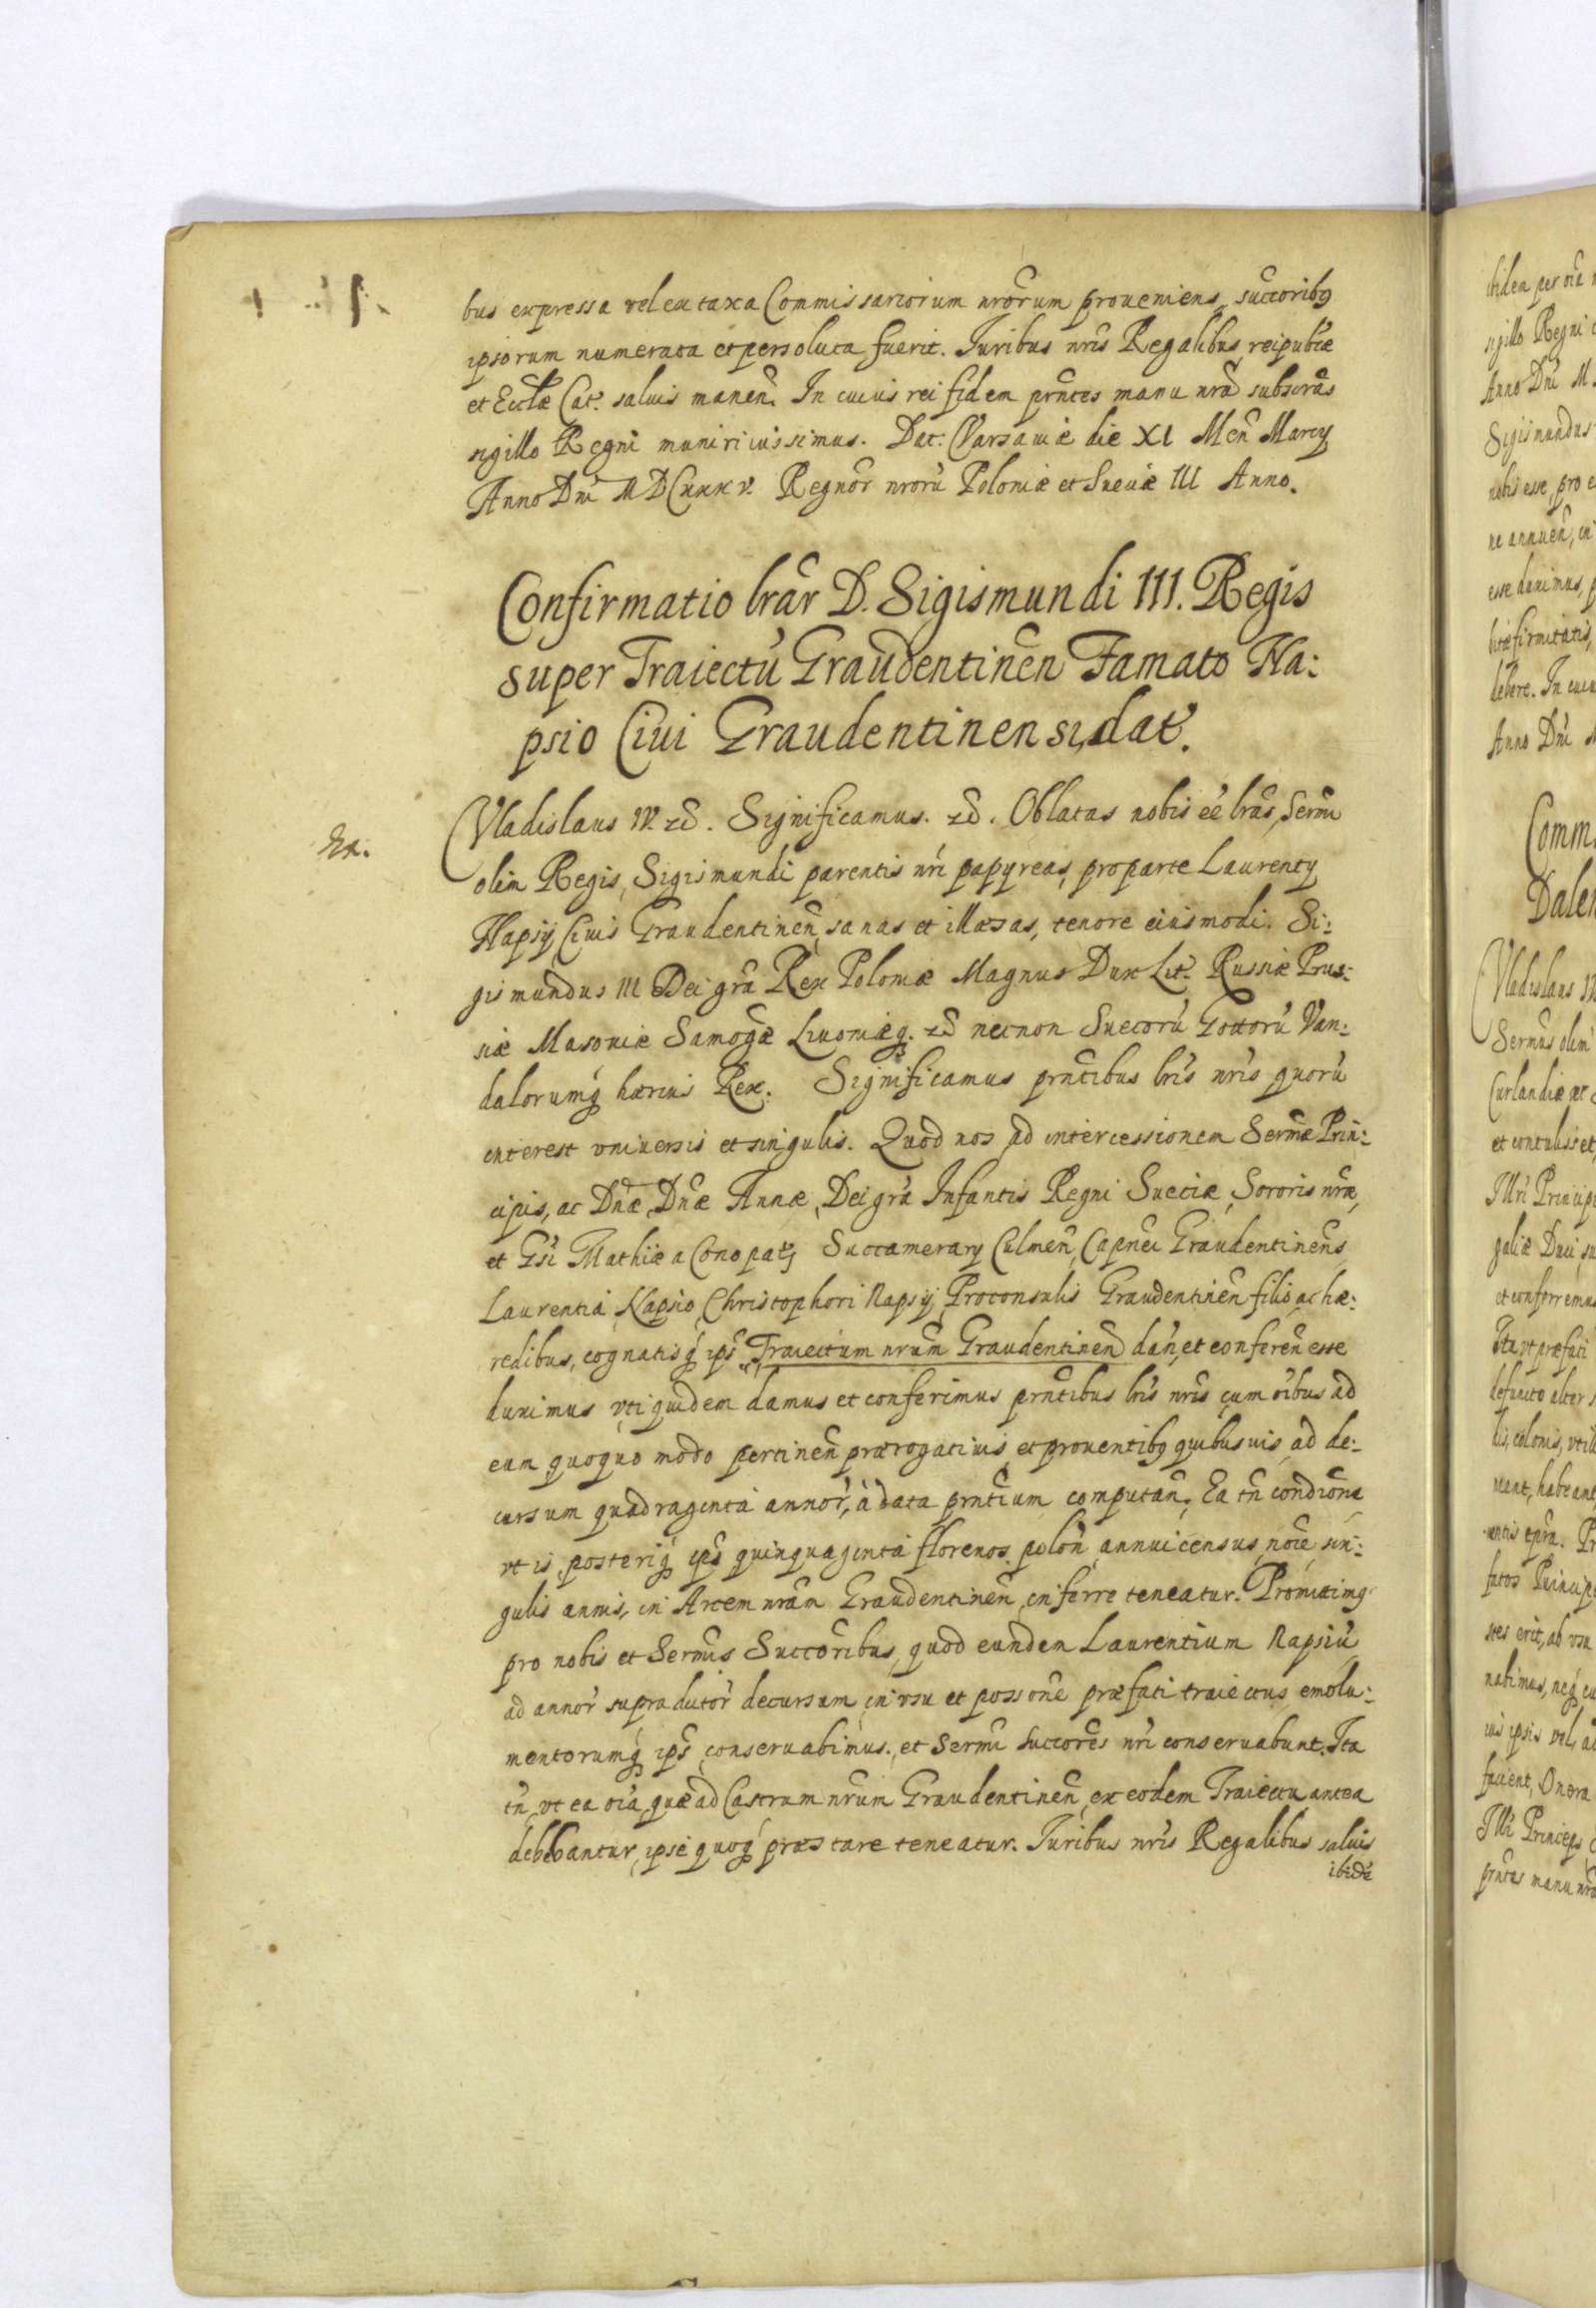 bus expressa vel ex taxa Commissariorum nrõrum proueniens succoribq
ipsorum numerata et persoluta fuerit. Iuribus nris Regalibus, reipubcæ
et Ecclæ Cat. saluis manen. In cuius rei fidem prntes manu nra subscras
sigillo Regni muniri iussimus. Dat: Varsauiæ die XI Men Marcy
Anno Dni MDCxxxv. Regnor nroru Poloniæ et Sueciæ III Anno.
Confirmatio lrar D. Sigismundi III. Regis
super Traiectu Graudentinen Famato Na:
psio Ciui Graudentinensi dat.
Ex.
Vladislaus IV. etc. Significamus. etc. Oblatas nobis eé lras, Sermi
olim Regis, Sigismundi parentis nri papyreas, pro parte Laurenty
Napsij Ciuis Graudentinen, sanas et illæsas, tenore eiusmodi. Si:
gismundus III Dei gra Rex Poloniæ Magnus Dux Lit. Russiæ Prus:
siæ Masouiæ Samogæ Liuoniæq. etc necnon Suecoru Gottoru Van:
dalorumq hærius Rex. Significamus prntibus lris nris quoru
interest vniuersis et singulis. Quod nos ad intercessionem Sermæ Prin:
cipis, ac Dnæ Dnæ Annæ, Dei gra Infantis Regni Sueciæ, Sororis nræ,
et Gsi Mathiæ a Conopat, Succamerary Culmen, Capnei Graudentinens
Laurentio Napsio, Christophori Napsij, Proconsulis Graudentinen filio ac hæ:
redibus, cognatisq ips Traiectum nrum Graudentinen dan, et conferen esse
duximus vti quidem damus et conferimus prntibus lris nris cum oibus ad
eum quoquo modo pertinen prærogatiuis, et prouentibq quibusuis, ad de:
cursum quadraginta annor, à data prntium computan. Ea tn condione
vt is, posteriq ips quinquaginta florenos polon annui census, noie sin:
gulis annis, in Arcem nram Graudentinen, inferre teneatur. Promittimq
pro nobis et Sermis Succoribus, quod eundem Laurentium Napsiu
ad annor supradictor decursum in vsu et possone præfati traiectus, emolu:
mentorumq ips conseruabimus, et Sermi Succores nri conseruabunt. Ita
tn vt ea oia, quæ ad Castrum nrum Graudentinen, ex eodem Traiectu antea
debebantur, ipse quoq præstare teneatur. Iuribus nris Regalibus saluis
ibide